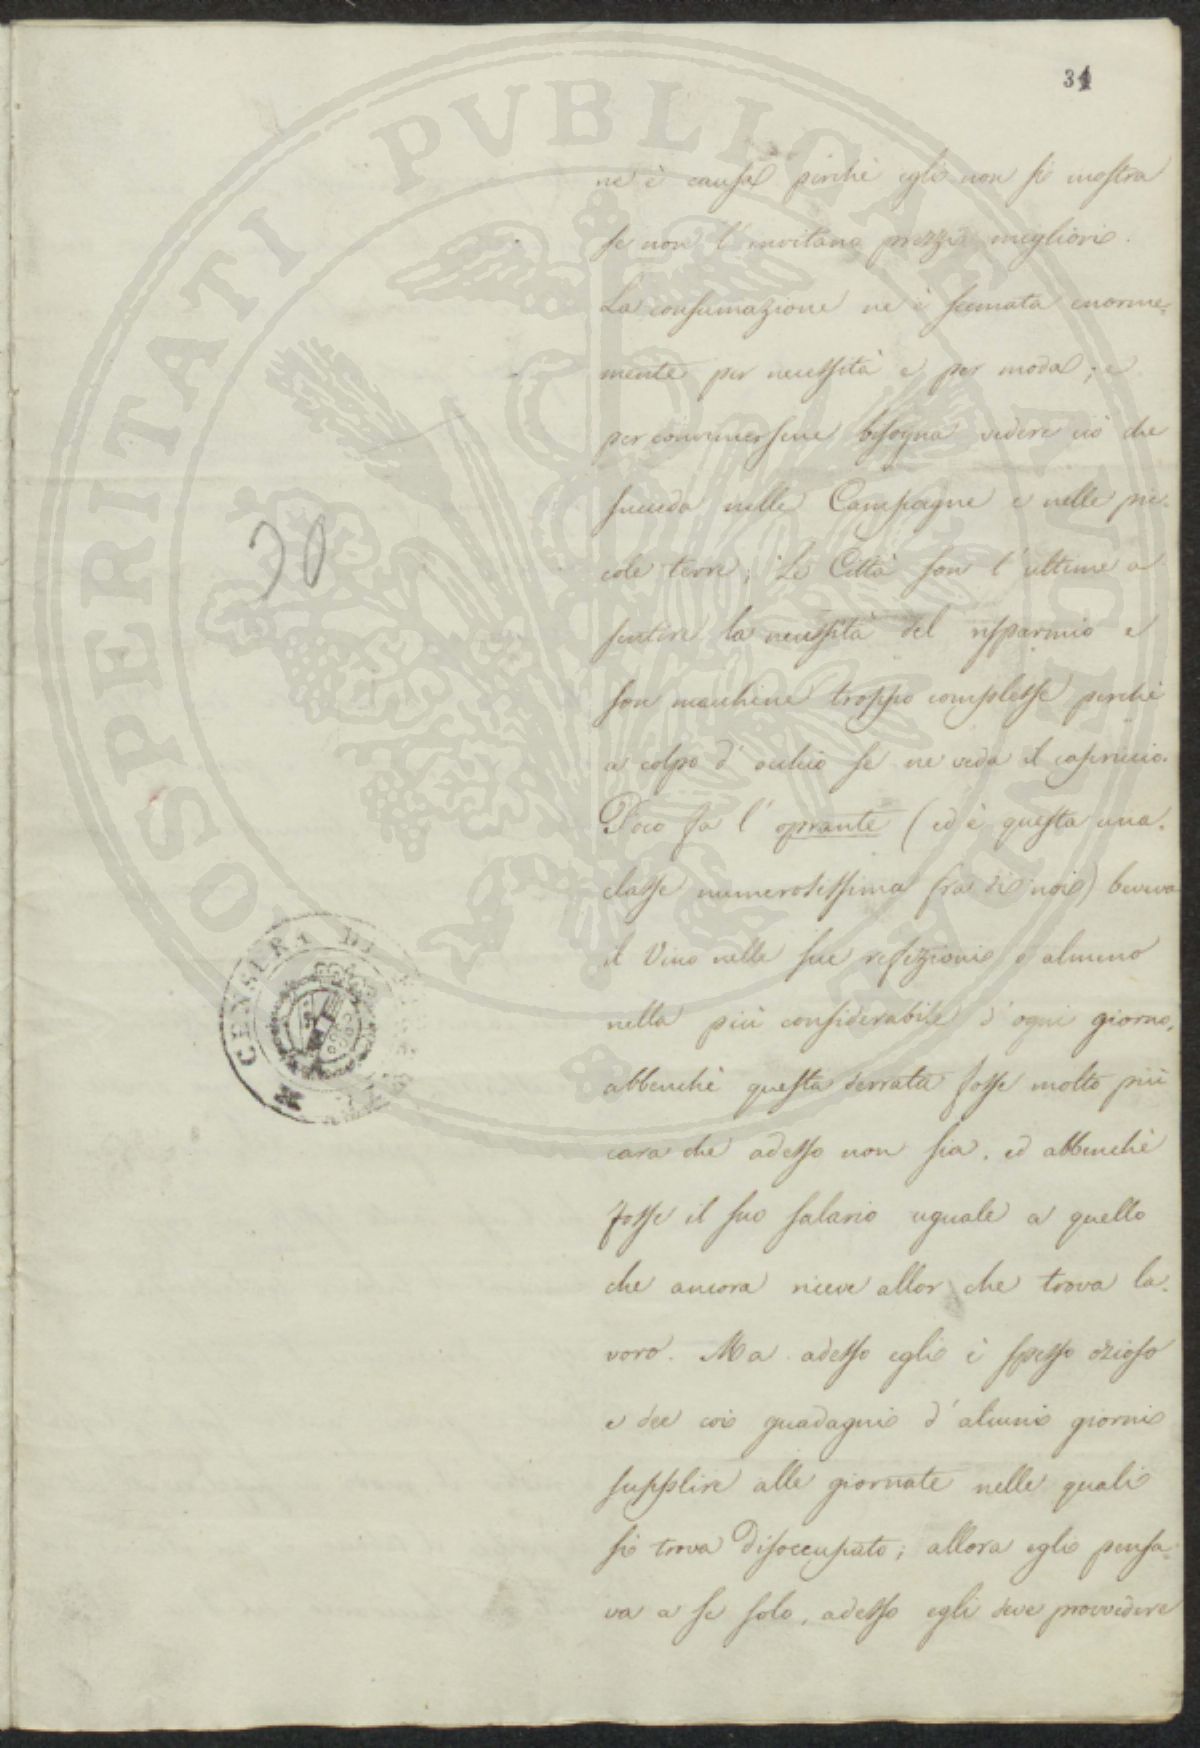 31
ne è causa perchè egli non si mostra
se non l'invitano prezzi migliori.
La consumazione ne è scemata enorme=
mente per necessità e per moda; e
per convincersene bisogna vedere ciò che
succeda nelle Campagne e nelle pic=
cole terre; Le Città son l'ultime a
sentire la necessità del risparmio e
son macchine troppo complesse perchè
a colpo d'occhio se ne veda il capriccio.
20
Poco fa l'oprante (ed è questa una
classe numerosissima fra di noi) beveva
il Vino nelle sue refezioni o almeno
nella più considerabile d'ogni giorno,
abbenchè questa derrata fosse molto più
cara che adesso non sia, ed abbenchè
fosse il suo salario uguale a quello
che ancora riceve allor che trova la=
voro. Ma adesso egli è spesso ozioso
e dee coi guadagni d'alcuni giorni
supplire alle giornate nelle quali
si trova disoccupato; allora egli pensa=
va a se solo, adesso egli deve provvedere
CENSURA DI
PROSPERITATI PVBLICAE AVGENDAE